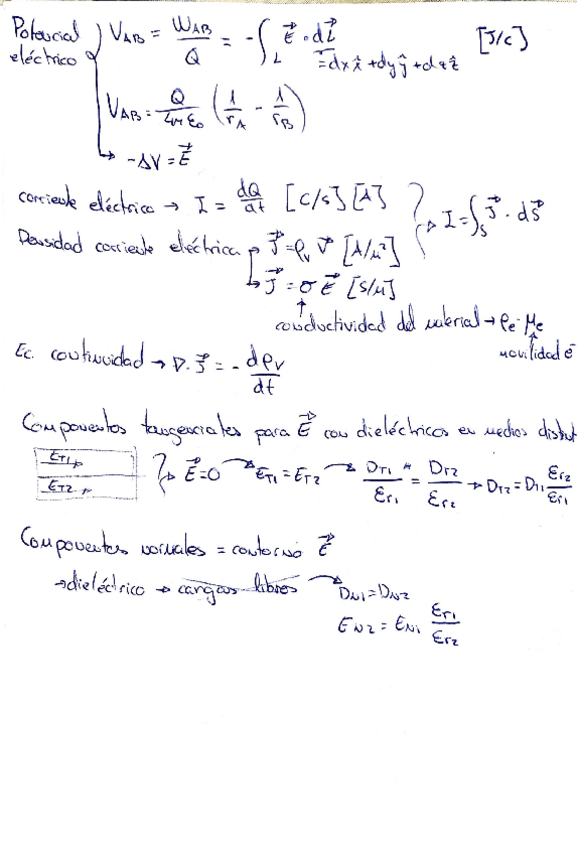 Potencial eléctrico
V_AB = W_AB / Q = - ∫_L E⃗ · dL⃗ [J/C]
= dx x̂ + dy ŷ + dz ẑ
V_AB = Q / 4πε₀ (1/r_A - 1/r_B)
↳ -ΔV = E⃗
corriente eléctrica → I = dQ/dt [C/s] [A]
I = ∫_S J⃗ · dS⃗
Densidad corriente eléctrica → J⃗ = ρ_v v⃗ [A/m²]
↳ J⃗ = σ E⃗ [S/m]
↑
conductividad del material → ρe · μe
movilidad e⁻
Ec. continuidad → ∇ · J⃗ = - dρ_v / dt
Componentes tangenciales para E⃗ con dieléctricos en medios distint
E_T1
E_T2
E⃗ = 0 → E_T1 = E_T2 → D_T1 / ε_r1 = D_T2 / ε_r2 → D_T2 = D_T1 ε_r2 / ε_r1
Componentes normales = contorno E⃗
→ dieléctrico → cargas libres → D_N1 = D_N2
E_N2 = E_N1 ε_r1 / ε_r2